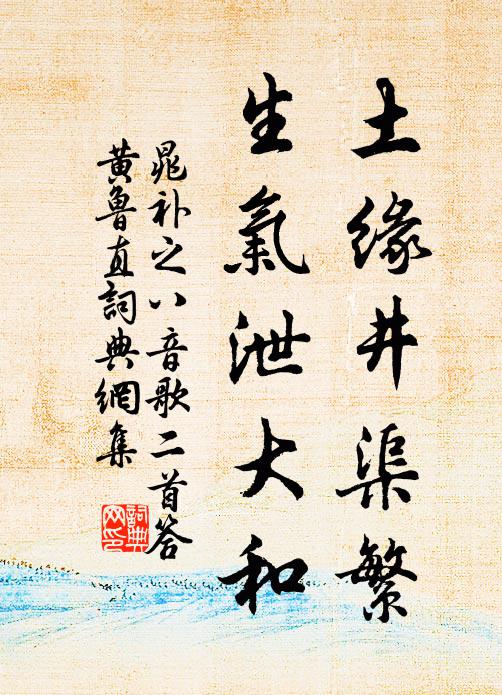 土緣井渠繁
生氣泄大和
晁补之八音歌二首答
黄魯直詞典網集